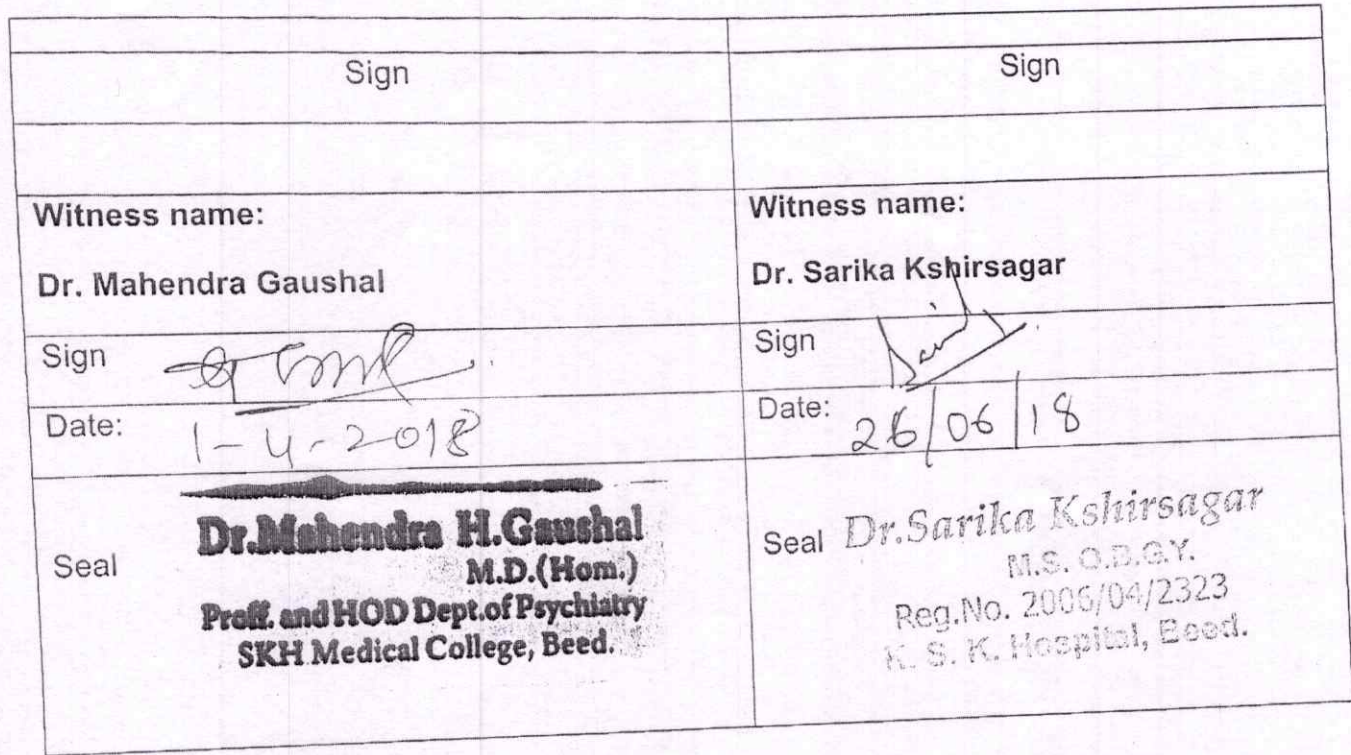 Sign
Sign
Witness name:
Dr. Mahendra Gaushal
Witness name:
Dr. Sarika Kshirsagar
Sign
Sign
Date: 1-4-2018
Date: 26/06/18
Seal
Dr.Mahendra H.Gaushal
M.D.(Hom.)
Proff. and HOD Dept.of Psychiatry
SKH Medical College, Beed.
Seal
Dr.Sarika Kshirsagar
M.S. O.B.G.Y.
Reg.No. 2006/04/2323
K. S. K. Hospital, Beed.